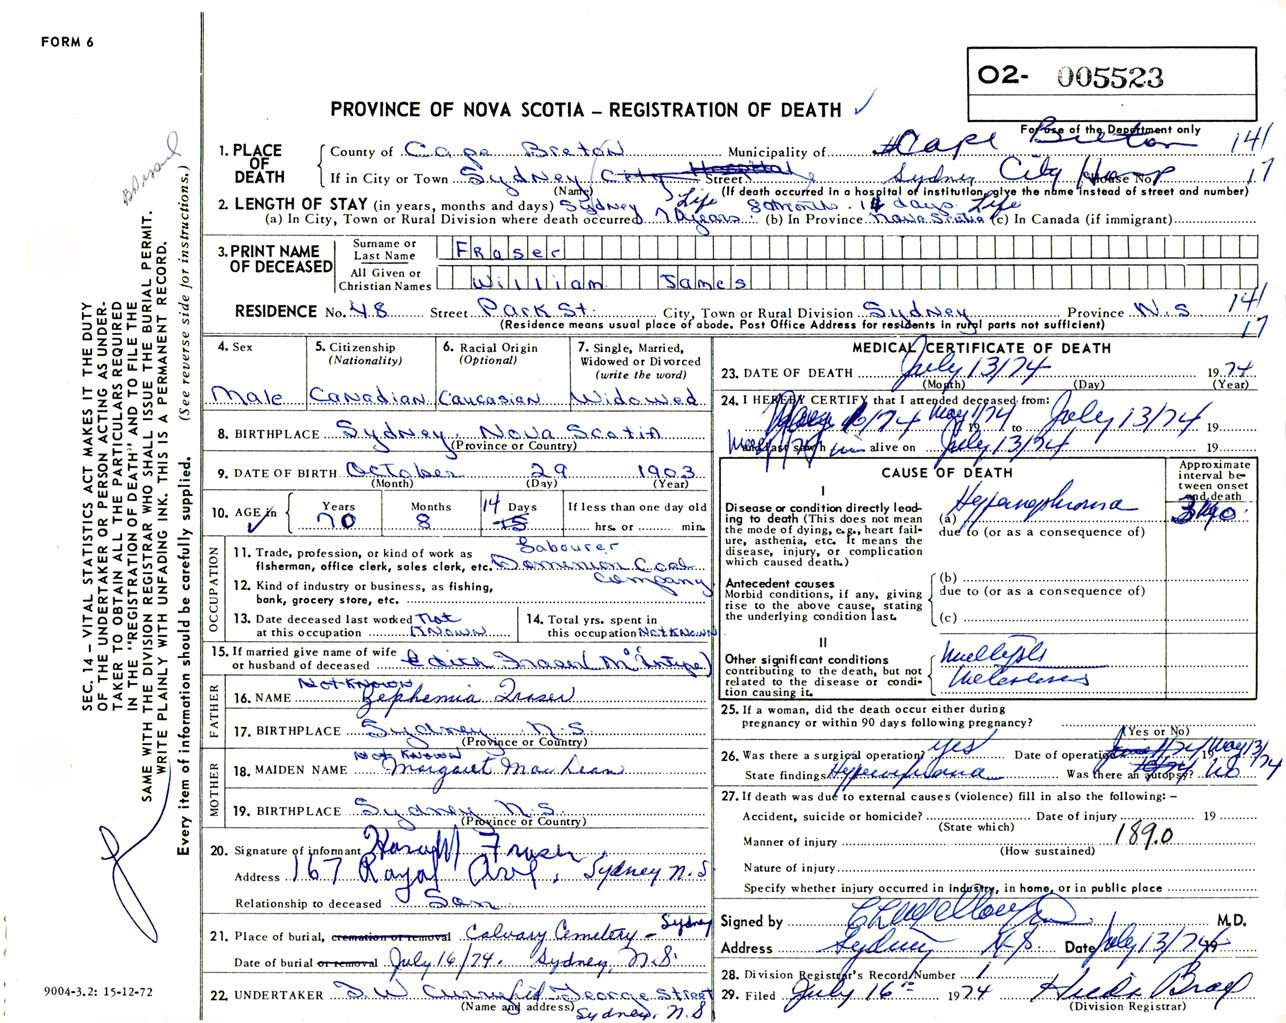 FORM 6
O2- 005523
PROVINCE OF NOVA SCOTIA – REGISTRATION OF DEATH ✓
For use of the Department only
1. PLACE OF DEATH
County of Cape Breton Municipality of Cape Breton 141
If in City or Town Sydney City Hospital Street Sydney City Hosp House No. 17
(Name) (If death occurred in a hospital or institution, give the name instead of street and number)
2. LENGTH OF STAY (in years, months and days) Sydney Life 8 months 14 days Life
(a) In City, Town or Rural Division where death occurred 70 years (b) In Province Nova Scotia (c) In Canada (if immigrant)
3. PRINT NAME OF DECEASED
Surname or Last Name Fraser
All Given or Christian Names William James
RESIDENCE No. 48 Street Park St. City, Town or Rural Division Sydney Province N.S 141
(Residence means usual place of abode. Post Office Address for residents in rural parts not sufficient) 17
4. Sex Male
5. Citizenship (Nationality) Canadian
6. Racial Origin (Optional) Caucasian
7. Single, Married, Widowed or Divorced (write the word) Widowed
8. BIRTHPLACE Sydney, Nova Scotia
(Province or Country)
9. DATE OF BIRTH October 29 1903
(Month) (Day) (Year)
10. AGE in ✓ Years 70 Months 8 Days 14 15 If less than one day old
hrs. or min.
OCCUPATION
11. Trade, profession, or kind of work as Labourer
fisherman, office clerk, sales clerk, etc. Dominion Coal
12. Kind of industry or business, as fishing, Company
bank, grocery store, etc.
13. Date deceased last worked at this occupation Not Known
14. Total yrs. spent in this occupation Not Known
15. If married give name of wife or husband of deceased Edith Fraser (McIntyre)
FATHER
16. NAME Not Known Zephemia Fraser
17. BIRTHPLACE Sydney N.S
(Province or Country)
MOTHER
18. MAIDEN NAME Not Known Margaret MacLean
19. BIRTHPLACE Sydney N.S.
(Province or Country)
20. Signature of informant Fraser
Address 167 Royal Ave, Sydney N.S
Relationship to deceased Son
21. Place of burial, cremation or removal Calvary Cemetery – Sydney
Date of burial or removal July 16/74. Sydney, N.S.
22. UNDERTAKER T.W. Curry George Street
(Name and address) Sydney, N.S
MEDICAL CERTIFICATE OF DEATH
23. DATE OF DEATH July 13/74 19 74
(Month) (Day) (Year)
24. I HEREBY CERTIFY that I attended deceased from:
May 1/74 19 to July 13/74 19
May 1/74 and last saw h im alive on July 13/74 19
CAUSE OF DEATH
Approximate interval between onset and death
I
Disease or condition directly leading to death (This does not mean the mode of dying, e.g., heart failure, asthenia, etc. It means the disease, injury, or complication which caused death.)
(a) Hypernephroma 3 mo
due to (or as a consequence of)
Antecedent causes
Morbid conditions, if any, giving rise to the above cause, stating the underlying condition last.
(b)
due to (or as a consequence of)
(c)
II
Other significant conditions contributing to the death, but not related to the disease or condition causing it.
Multiple
Metastases
25. If a woman, did the death occur either during pregnancy or within 90 days following pregnancy?
(Yes or No)
26. Was there a surgical operation? yes Date of operation May 13/74 19
State findings Hypernephroma Was there an autopsy? No
27. If death was due to external causes (violence) fill in also the following: –
Accident, suicide or homicide? Date of injury 19
(State which)
Manner of injury 189.0
(How sustained)
Nature of injury
Specify whether injury occurred in industry, in home, or in public place
Signed by M.D.
Address Sydney N.S. Date July 13/74 19
28. Division Registrar's Record Number 1
29. Filed July 16th 1974 Hilda
(Division Registrar)
SEC. 14 – VITAL STATISTICS ACT MAKES IT THE DUTY
OF THE UNDERTAKER OR PERSON ACTING AS UNDER-
TAKER TO OBTAIN ALL THE PARTICULARS REQUIRED
IN THE "REGISTRATION OF DEATH" AND TO FILE THE
SAME WITH THE DIVISION REGISTRAR WHO SHALL ISSUE THE BURIAL PERMIT.
WRITE PLAINLY WITH UNFADING INK. THIS IS A PERMANENT RECORD.
Every item of information should be carefully supplied. (See reverse side for instructions.)
9004-3.2: 15-12-72